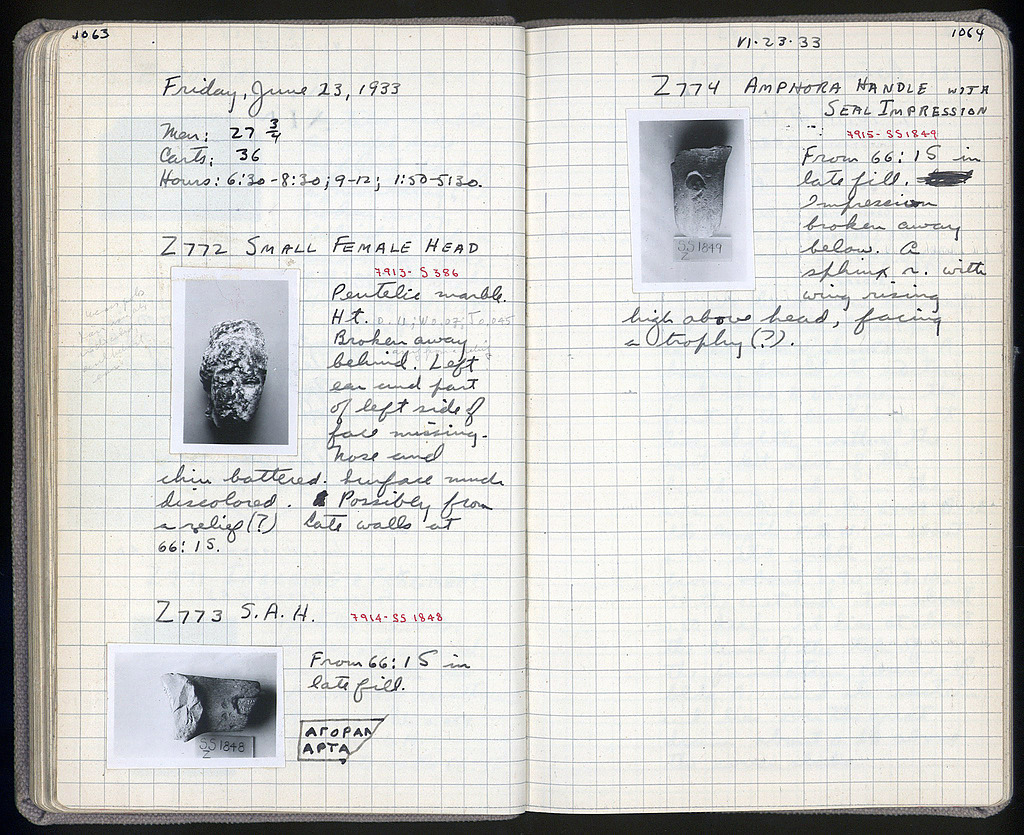 1063
Friday, June 23, 1933
Men: 27 3/4
Carts: 36
Hours: 6:30-8:30; 9-12; 1:50-5:30.
Z772 SMALL FEMALE HEAD
7913- S 386
Pentelic marble.
Ht. 0.11; W. 0.07; T. 0.045
Broken away
behind. Left
ear and part
of left side of
face missing.
Nose and
chin battered. Surface much
discolored. Possibly from
a relief(?) Late walls at
66: 15.
Z773 S.A.H. 7914- SS 1848
From 66: 15 in
late fill.
SS 1848
Z
ΑΓΟΡΑΝ
ΑΡΤΑ
1064
VI·23·33
Z774 AMPHORA HANDLE WITH
SEAL IMPRESSION
7915- SS1849
From 66: 15 in
late fill.
Impression
broken away
below. A
sphinx r. with
wing rising
high above head, facing
a trophy(?).
SS 1849
Z